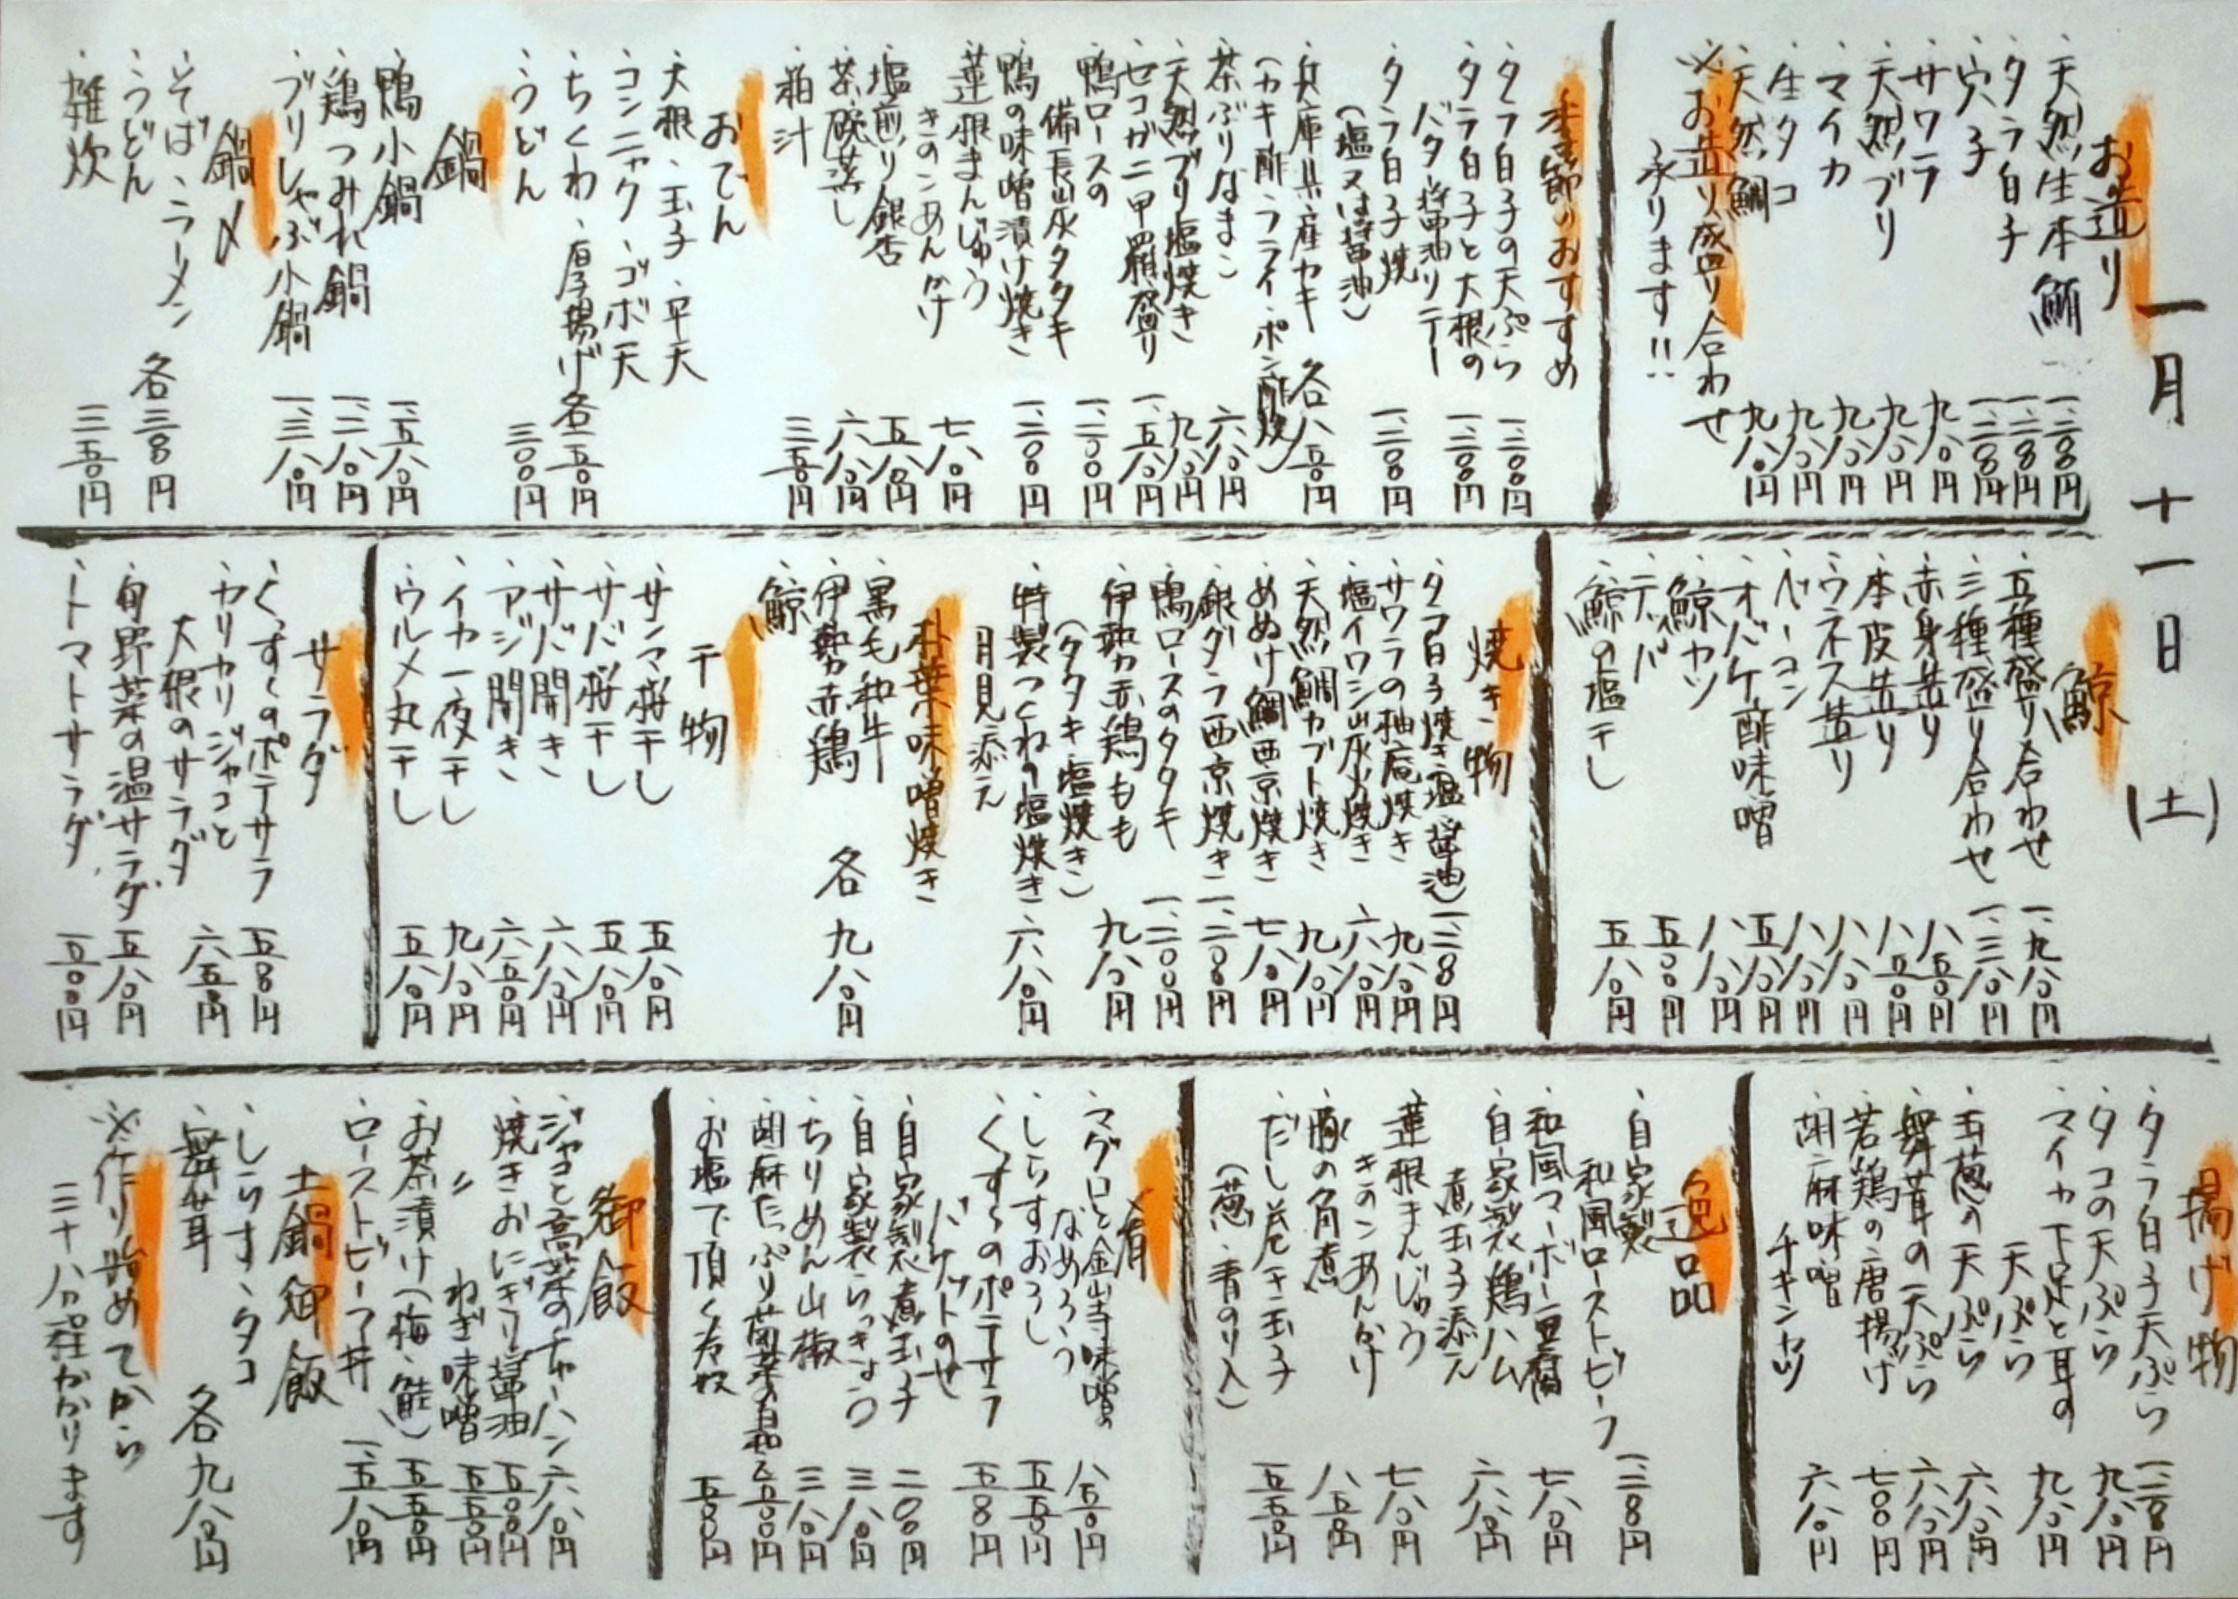 一月十一日(土)
お造り
・天然生本鮪 一、二八〇円
・タラ白子 一、二八〇円
・穴子 一、二八〇円
・サワラ 九八〇円
・天然ブリ 九八〇円
・マイカ 九八〇円
・生タコ 九八〇円
・天然鯛 九八〇円
※お造り盛り合わせ
承ります!!
季節のおすすめ
・タラ白子の天ぷら 一、二〇〇円
・タラ白子と大根の
バター醤油ソテー 一、二〇〇円
・タラ白子焼
(塩又は醤油) 一、二〇〇円
・兵庫県産カキ 各八五〇円
(カキ酢、フライ、ポン酢焼)
・茶ぶりなまこ 六八〇円
・天然ブリ塩焼き 九八〇円
・セコガニ甲羅盛り 一、五八〇円
・鴨ロースの
備長炭タタキ 一、二〇〇円
・鴨の味噌漬け焼き 一、二〇〇円
・蓮根まんじゅう
きのこあんかけ 七八〇円
・塩煎り銀杏 五八〇円
・茶碗蒸し 六八〇円
・粕汁 三五〇円
おでん
・大根、玉子、平天
・コンニャク、ゴボ天
・ちくわ、厚揚げ 各二五〇円
・うどん 三〇〇円
鍋
・鴨小鍋 一、五八〇円
・鶏つみれ鍋 一、二八〇円
・ブリしゃぶ小鍋 一、三八〇円
鍋〆
・そば、ラーメン
・うどん 各三八〇円
・雑炊 三五〇円
鯨
・五種盛り合わせ 一、九八〇円
・三種盛り合わせ 一、三八〇円
・赤身造り 八五〇円
・本皮造り 八五〇円
・ウネス造り 八八〇円
・ベーコン 八八〇円
・オバケ酢味噌 五八〇円
・鯨カツ 八八〇円
・テッパ 五〇〇円
・鯨の塩干し 五八〇円
焼き物
・タラ白子焼き(塩、醤油) 一、二八〇円
・サワラの柚庵焼き 九八〇円
・塩イワシ炭火焼き 六八〇円
・天然鯛カブト焼き 九八〇円
・めぬけ鯛西京焼き 七八〇円
・銀ダラ西京焼き 一、二八〇円
・鴨ロースのタタキ 一、二〇〇円
・伊勢赤鶏もも
(タタキ、塩焼き) 九八〇円
・特製つくねの塩焼き 六八〇円
月見添え
朴葉味噌焼き
・黒毛和牛
・伊勢赤鶏 各九八〇円
・鯨
干物
・サンマ桜干し 五八〇円
・サバ桜干し 五八〇円
・サバ開き 六八〇円
・アジ開き 六五〇円
・イカ一夜干し 九八〇円
・ウルメ丸干し 五八〇円
サラダ
・くすくすのポテサラ 五八〇円
・カリカリジャコと
大根のサラダ 六五〇円
・旬野菜の温サラダ 五八〇円
・トマトサラダ 五〇〇円
揚げ物
・タラ白子天ぷら 一、二八〇円
・タコの天ぷら 九八〇円
・マイカ下足と耳の
天ぷら 九八〇円
・玉葱の天ぷら 六八〇円
・舞茸の天ぷら 六八〇円
・若鶏の唐揚げ 七八〇円
・胡麻味噌
チキンカツ 六八〇円
逸品
・自家製
和風ローストビーフ 一、二八〇円
・和風マーボー豆腐 七八〇円
・自家製鶏ハム
煮玉子添え 六八〇円
・蓮根まんじゅう
きのこあんかけ 七八〇円
・豚の角煮 八五〇円
・だし巻き玉子
(葱、青のり入) 五五〇円
肴
・マグロと金山寺味噌の
なめろう 八五〇円
・しらすおろし 五五〇円
・くすくすのポテサラ
バケットのせ 五八〇円
・自家製煮玉子 二〇〇円
・自家製らっきょう 三八〇円
・ちりめん山椒 三八〇円
・胡麻たっぷり菊菜のお和え 五〇〇円
・お塩で頂く冷奴 五〇〇円
御飯
・ジャコと高菜のチャーハン 六八〇円
・焼きおにぎり醤油 五〇〇円
・〃 ねぎ味噌 五五〇円
・お茶漬け(梅、鮭) 五五〇円
・ローストビーフ丼 一、五八〇円
土鍋御飯
・しらす、タコ
・舞茸 各九八〇円
※作り始めてから
三十分程かかります